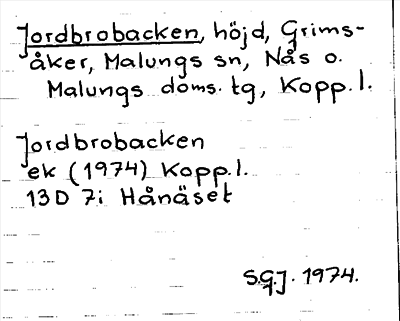 Jordbrobacken, höjd, Grims-
åker, Malungs sn, Nås o.
Malungs doms. tg, Kopp.l.
Jordbrobacken
ek (1974) Kopp.l.
13D 7i Hånäset
S.G.J. 1974.